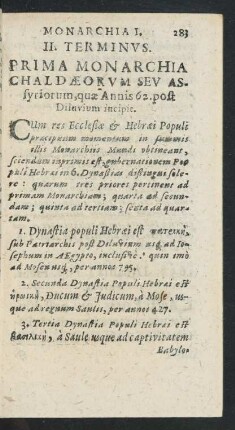 MONARCHIA I. 283
II. TERMINVS.
PRIMA MONARCHIA
CHALDÆORVM SEV AS-
syriorum, quæ Annis 62. post
Diluvium incipit.
CUm res Ecclesiæ & Hebræi Populi
præcipuum momentum in summis
illis Monarchiis Mundi obtineant,
sciendum inprimis est, gubernationem Po-
puli Hebræi in 6. Dynastias distingui sole-
re: quarum tres priores pertinent ad
primam Monarchiam; quarta ad secun-
dam; quinta ad tertiam; sexta ad quar-
tam.
1. Dynastia populi Hebræi est πατρικὴ,
sub Patriarchis post Deluvium usq; ad Jo-
sephum in AEgypto, inclusivè: quin imò
ad Mosen usq;, per annos 795.
2. Secunda Dynastia Populi Hebræi est
ἡρωικὴ, Ducum & Judicum, à Mose, us-
que ad regnum Saulis, per annos 427.
3. Tertia Dynastia Populi Hebræi est
βασιλικὴ, à Saule usque ad captivitatem
Babylo-